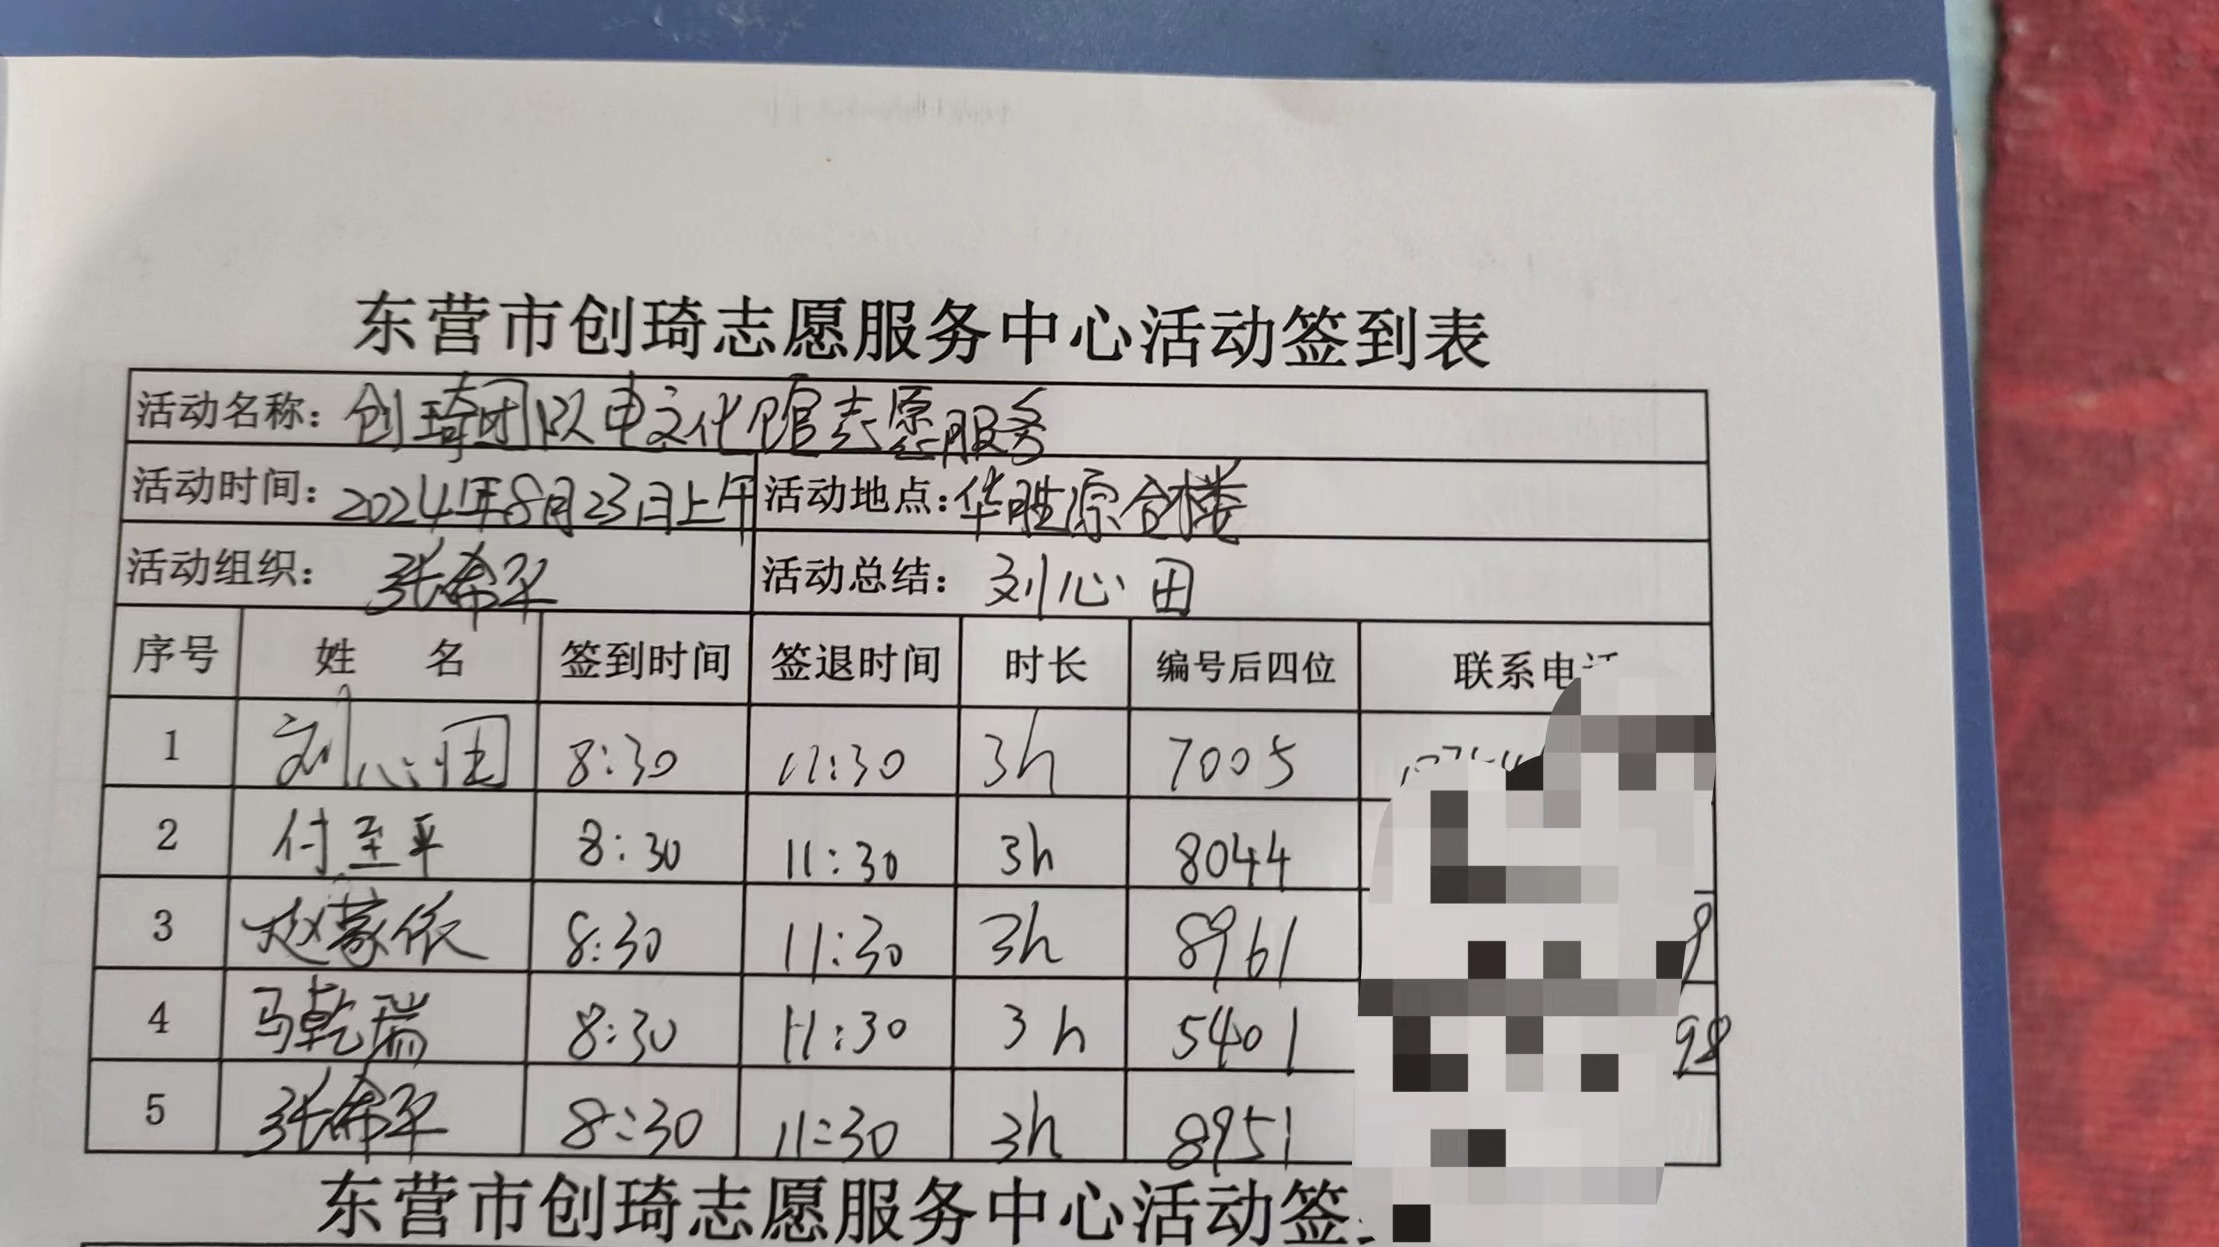 东营市创琦志愿服务中心活动签到表
活动名称：创琦团队电文化馆志愿服务
活动时间：2024年8月23日上午 活动地点：华胜综合楼
活动组织：张希平 活动总结：刘心田
序号 姓名 签到时间 签退时间 时长 编号后四位 联系电
1 刘心田 8:30 11:30 3h 7005
2 付至平 8:30 11:30 3h 8044
3 赵蒙依 8:30 11:30 3h 8961 9
4 马乾瑞 8:30 11:30 3h 5401 98
5 张希平 8:30 11:30 3h 8951
东营市创琦志愿服务中心活动签